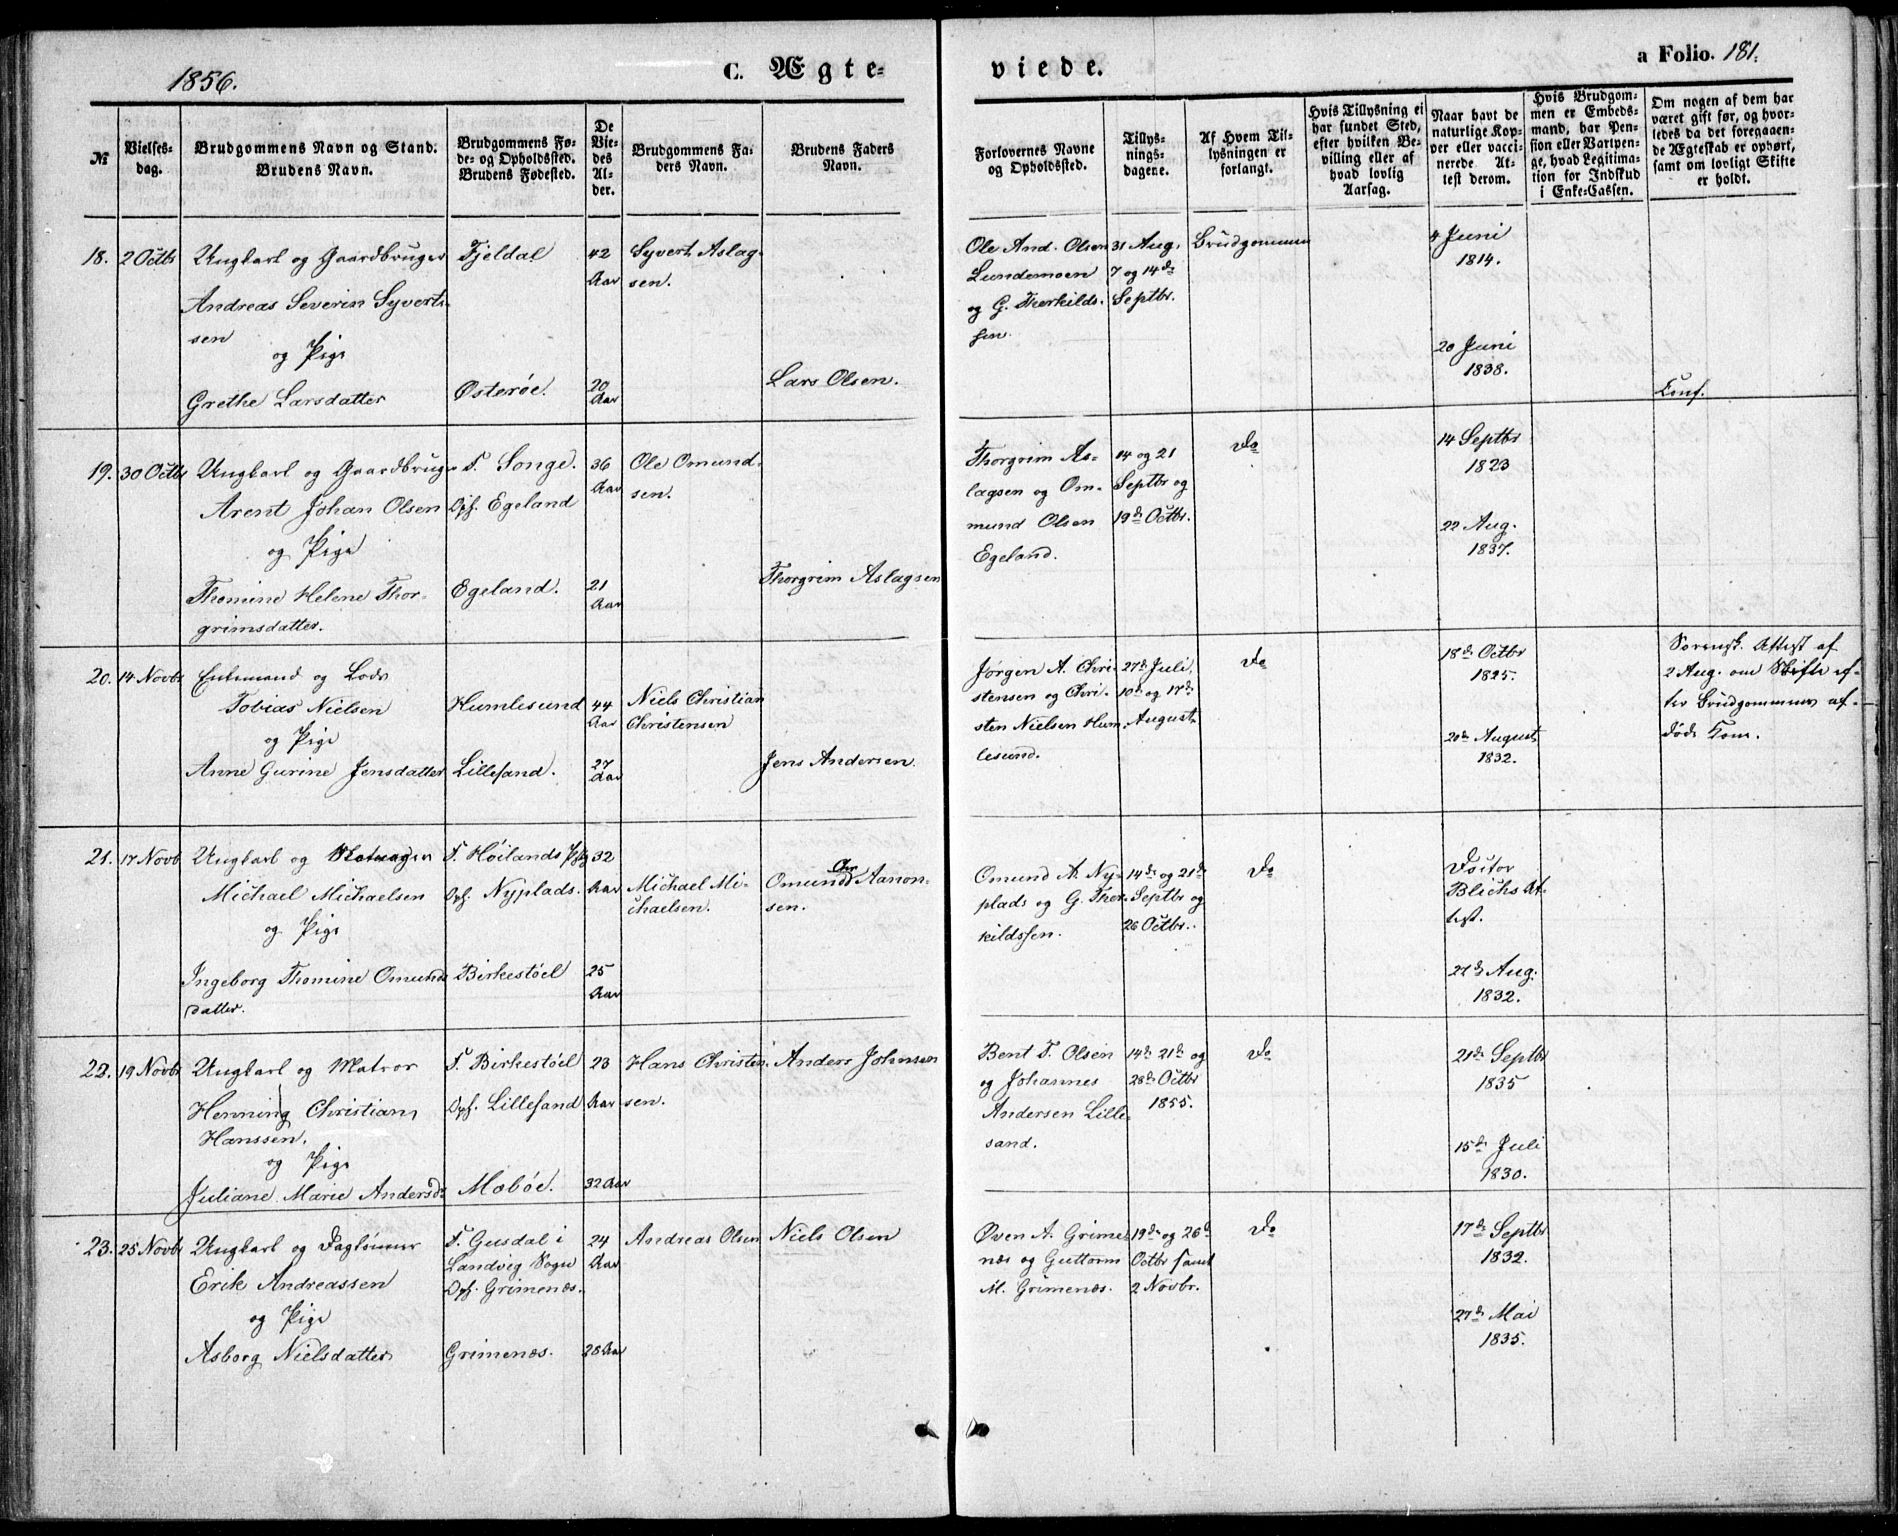 1856.
C. Ægte-
viede.
a Folio. 181.
№
Vielses-
dag.
Brudgommens Navn og Stand.
Brudens Navn.
Brudgommens Fø-
de- og Opholdssted.
Brudens Fødested.
De
Vie-
des
Al-
der.
Brudgommens Fa-
ders Navn.
Brudens Faders
Navn.
Forlovernes Navne
og Opholdssted.
Tillys-
nings-
dagene.
Af Hvem Til-
lysningen er
forlangt.
Hvis Tillysning ei
har fundet Sted,
efter hvilken Be-
villing eller af
hvad lovlig
Aarsag.
Naar havt de
naturlige Kop-
per eller vacci-
nerede At-
test derom.
Hvis Brudgom-
men er Embeds-
mand, har Pen-
sion eller Vartpen-
ge, hvad Legitima-
tion for Indskud
i Enke-Cassen.
Om nogen af dem har
været gift før, og hvor-
ledes da det foregaaen-
de Ægteskab er ophørt,
samt om lovligt Skifte
er holdt.
18. 2 Octbr
Ungkarl og Gaardbruger
Andreas Severin Syverts-
sen
og Pige
Grethe Larsdatter
Fjeldal
Østerøe.
42
Aar
20
Aar
Syvert Aslag-
sen.
Lars Olsen.
Ole And. Olsen
Lundemoen
og G. Therkilds-
sen.
31 Aug.
7 og 14de
Septbr.
Brudgommen
4 Juni
1814.
20 Juni
1838.
Conf.
19. 30 Octbr
Ungkarl og Gaardbruger
Arent Johan Olsen
og Pige
Thomine Helene Thor-
grimsdatter.
F. Songe.
Oph. Egeland
Egeland.
36
Aar
21
Aar
Ole Omund-
sen.
Thorgrim Aslagsen
Thorgrim As-
lagsen og Om-
mund Olsen
Egeland.
14 og 21
Septbr og
19de Octbr.
Do
14 Septbr
1823
22 Aug.
1837.
20. 14 Novbr
Enkemand og Lods
Tobias Nielsen
og Pige
Anne Gurine Jensdatter
Humlesund
Lillesand.
44
Aar
27
Aar
Niels Christian
Christensen
Jens Andersen.
Jørgen A. Chri-
stensen og Chri-
sten Nielsen Hum-
lesund.
27de Juli,
10de og 17de
August
Do
18de Octbr
1825.
20de August
1832.
Sorensk. Attest af
2 Aug. om Skifte ef-
ter Brudgommens af-
døde Kone.
21. 17 Novb
Ungkarl og
Michael Michaelsen
og Pige
Ingeborg Thomine Omunds
datter.
F. Høilands Pgj
Oph. Nyplads.
Birkestøel
32
Aar
25
Aar
Michael Mi-
chaelsen.
Chr
Omund Aanon-
sen.
Omund A. Ny-
plads og G. Ther-
kildssen.
14de og 21de
Septbr og
26 Octbr.
Do
Doctor
Blichs At-
test.
27de Aug.
1832.
22. 19 Novbr
Ungkarl og Matros
Henning Christian
Hanssen.
og Pige
Juliane Marie Andersdr
F. Birkestøel
Oph. Lillesand
Møbøe.
23
Aar
32 Aar
Hans Christen-
sen.
Anders Johnsen
Bent T. Olsen
og Johannes
Andersen Lille-
sand.
14de 21de og
28de Octbr
1855.
Do
21de Septbr
1835
15de Juli
1830.
23. 25 Novbr
Ungkarl og Daglønner
Erik Andreassen
og Pige
Asborg Nielsdatter
F. Gusdal i
Landvig Sogn
Oph. Grimenæs.
Grimenæs.
24
Aar
28 Aar
Andreas Olsen
Niels Olsen
Øven A. Grime-
næs og Guttorm
M. Grimenæs.
19de og 26de
Octbr samt
2 Novbr.
Do
17de Septbr
1832.
27de Mai
1835.